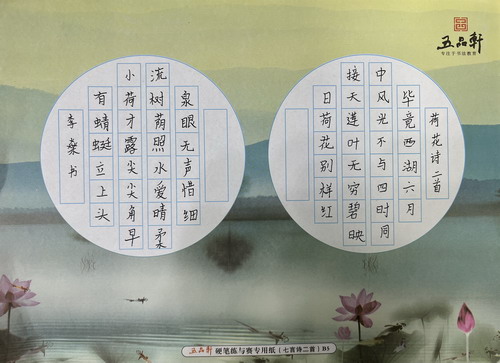 五品軒
荷花诗二首
毕竟西湖六月
中风光不与四时同
接天莲叶无穷碧映
日荷花别样红
泉眼无声惜细
流树荫照水爱晴柔
小荷才露尖尖角早
有蜻蜓立上头
李 书
五品軒 硬笔练与赛专用纸（七言诗二首）